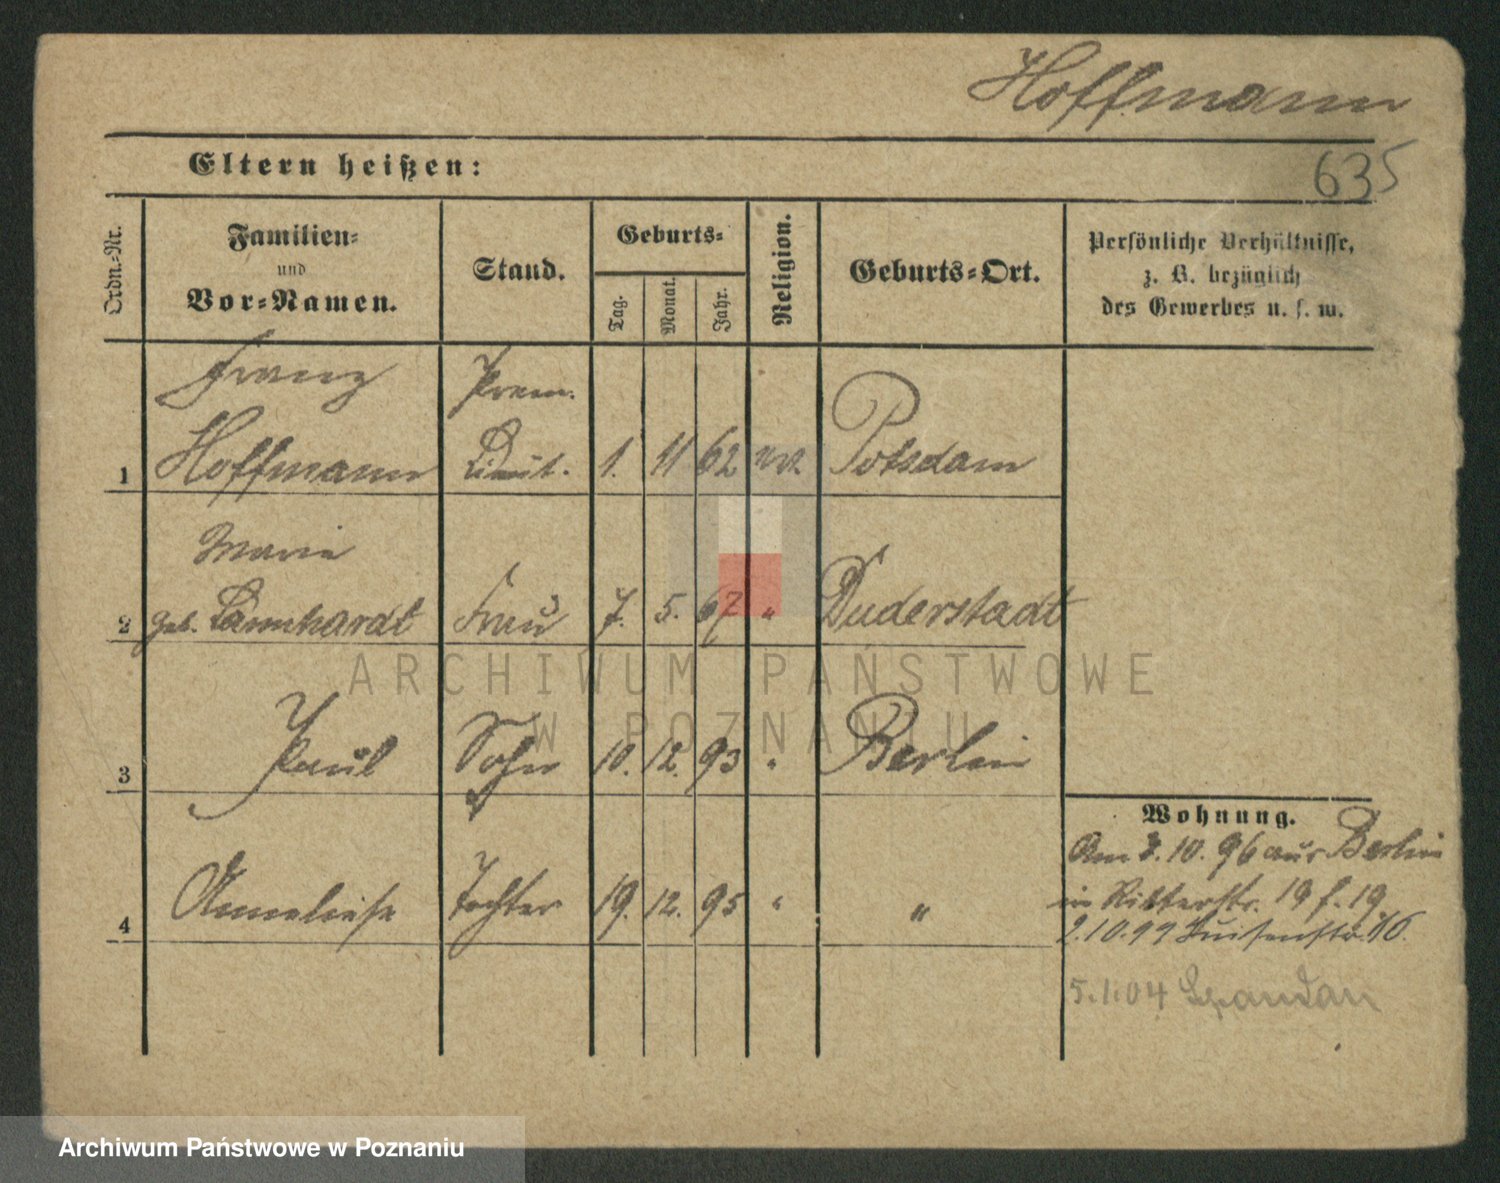 Hoffmann
635
Eltern heißen:
Ordn.-Nr.
Familien-
und
Vor-Namen.
Stand.
Geburts-
Tag.
Monat.
Jahr.
Religion.
Geburts-Ort.
Persönliche Verhältnisse,
z. B. bezüglich
des Gewerbes u. s. w.
Franz
Prem.
1 Hoffmann Lieut. 1. 11 62 Potsdam
Marie
2 geb. Frau 7. 5. 67 " Duderstadt
3 Paul Sohn 10. 12. 93 " Berlin
4 Anneliese Tochter 19. 12. 95 " "
Wohnung.
Am 3.10.96 aus Berlin
in Ritterstr. 19 f. 19
2.10.99 Luisenstr. 16.
5.1.04 Spandau
ARCHIWUM PAŃSTWOWE
W POZNANIU
Archiwum Państwowe w Poznaniu